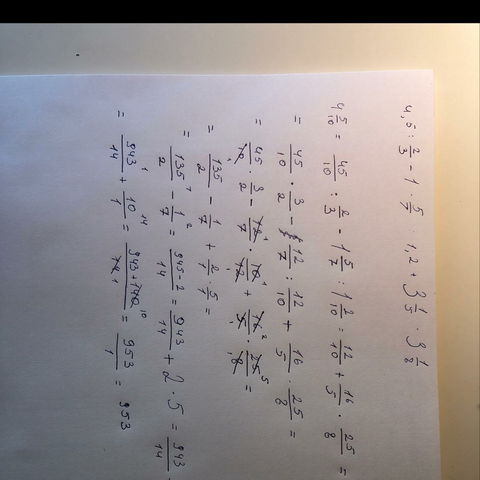 4,5 : 2/3 - 1 · 5/7 : 1,2 + 3 1/5 · 3 1/8
4 5/10 = 45/10 : 2/3 - 1 5/7 : 1 2/10 = 12/10 + 16/5 · 25/8 =
= 45/10 · 3/2 - 12/7 : 12/10 + 16/5 · 25/8 =
= 45/10 · 3/2 - 12/7 · 10/12 + 16/5 · 25/8 =
= 135/2 - 1/7 + 2/1 · 5/1 =
= 135/2 - 1/7 = 945-2/14 = 943/14 + 2 · 5 = 943/14
= 943/14 + 10/1 = 943+140/14 = 953/1 = 953